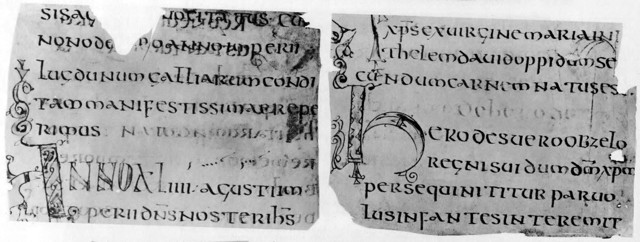 NONODE ANNO INPERII
LUGDUNUM GALLIARUM CONDI
TAM MANIFESTISSIMA REPE
RIMUS
ANNO XLIIII· AGUSTI IM
PERII DNS NOSTER IHS
XPS EX UIRGINE MARIA IN
THELEM DAUID OPPIDUM SE
CUNDUM CARNEM NATUS ES
HERODES UERO OB ZELO
REGNI SUI DUM DM XPM
PERSEQUI NITITUR PARUO
LUS INFANTES INTEREMIT